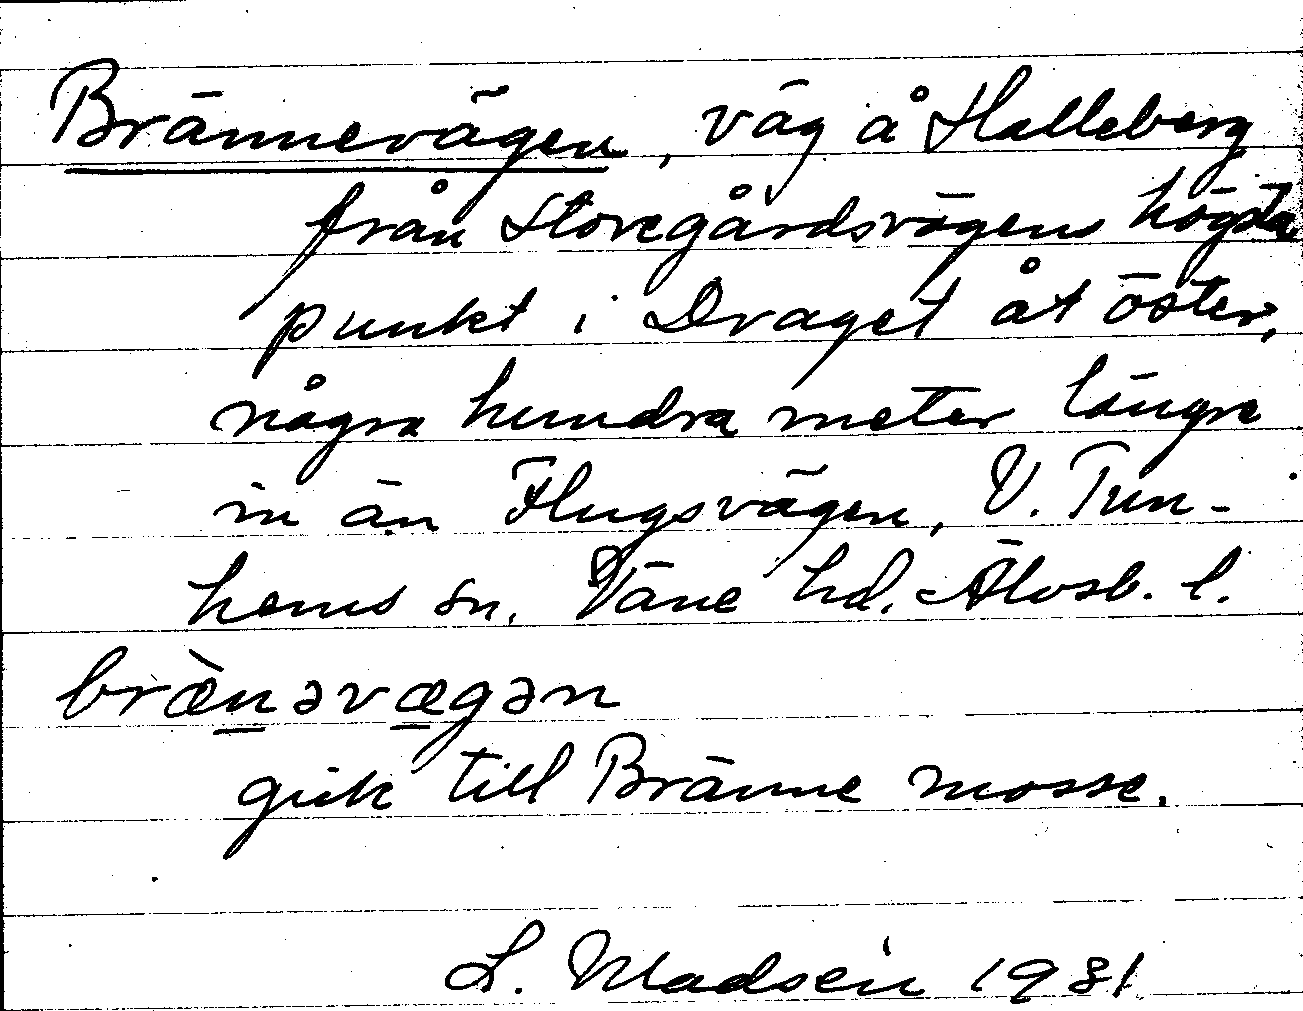 Brännevägen, väg å Halleberg
från Storegårdsvägens högsta
punkt i Draget åt öster,
några hundra meter längre
in än Flugsvägen, V. Tun-
hems sn. Väne hd. Älvsb. l.
bræ̀nəvægən
gick till Bränne mosse.
L. Madsén 1931